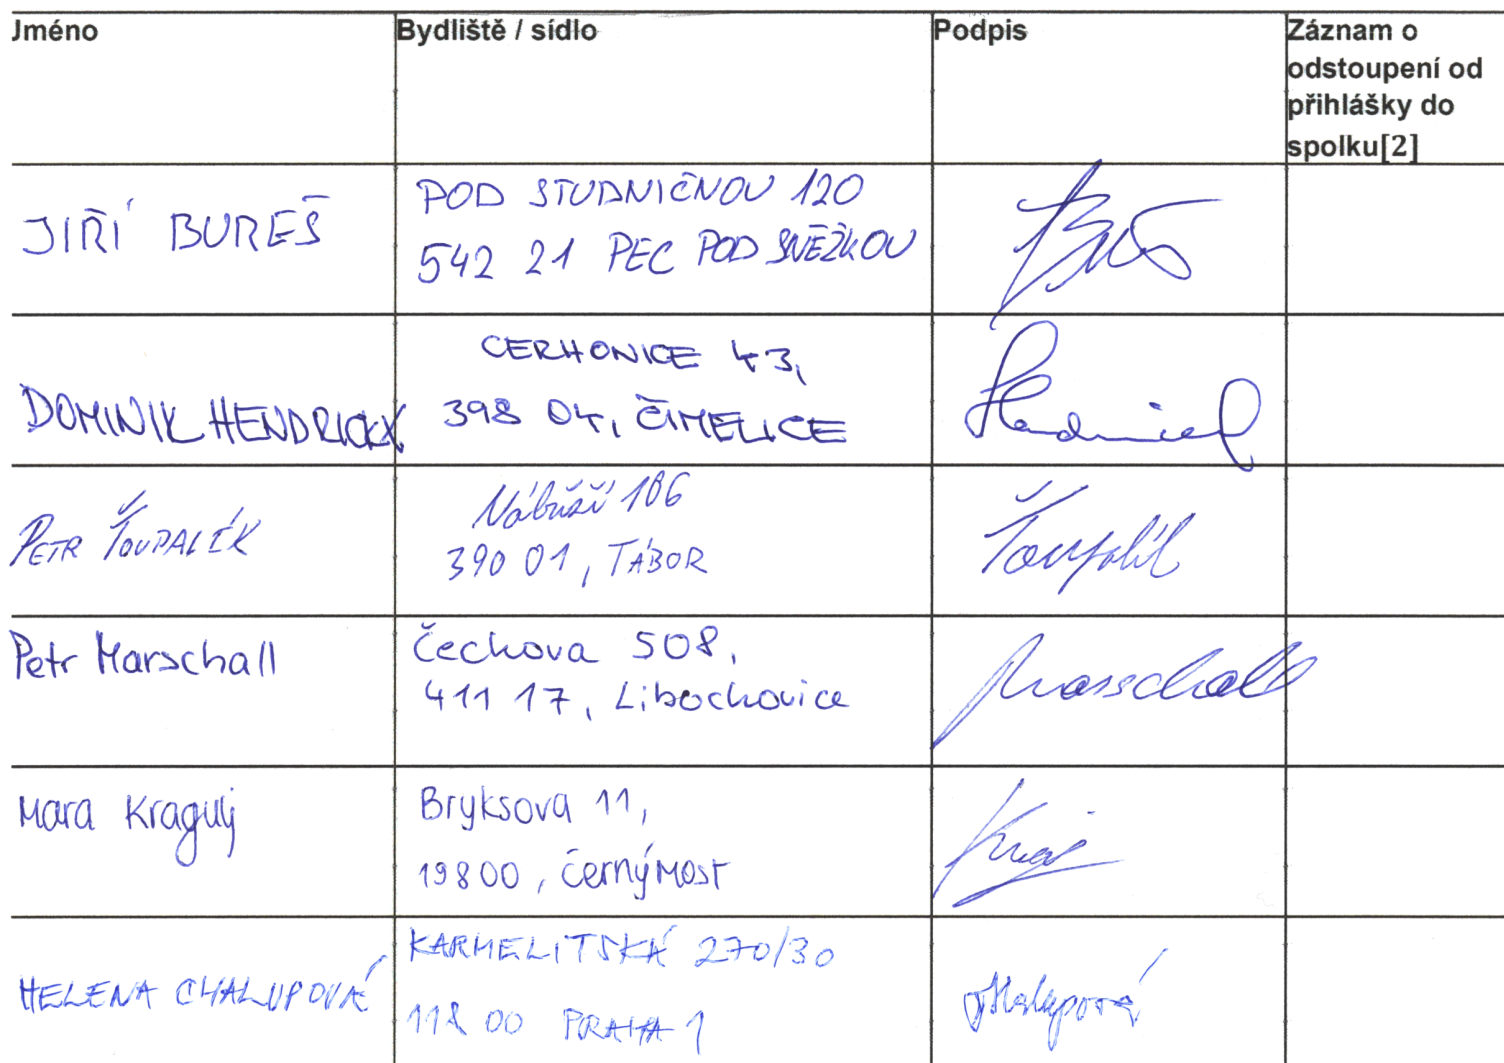 Jméno
Bydliště / sídlo
Podpis
Záznam o
odstoupení od
přihlášky do
spolku[2]
JIŘÍ BUREŠ
POD STUDNIČNOU 120
542 21 PEC POD SNĚŽKOU
DOMINIK HENDRICKX
CERHONICE 43,
398 04, ČIMELICE
PETR ŤOUPALÍK
Nábřeží 186
390 01, TÁBOR
Ťoupalík
Petr Marschall
Čechova 508,
411 17, Libochovice
Marschall
Mara Kragulj
Bryksova 11,
19800, Černý Most
HELENA CHALUPOVÁ
KARMELITSKÁ 270/30
118 00 PRAHA 1
Chalupová